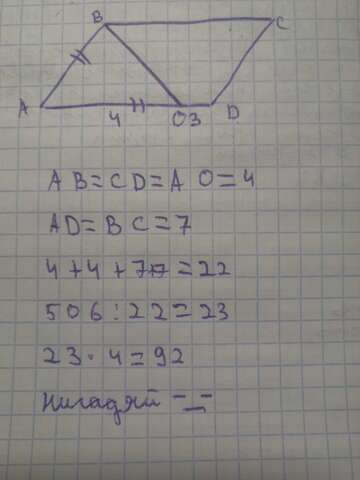 B C
A 4 O 3 D
AB=CD=AO=4
AD=BC=7
4+4+7+7=22
506:22=23
23·4=92
Нигадяй -_-